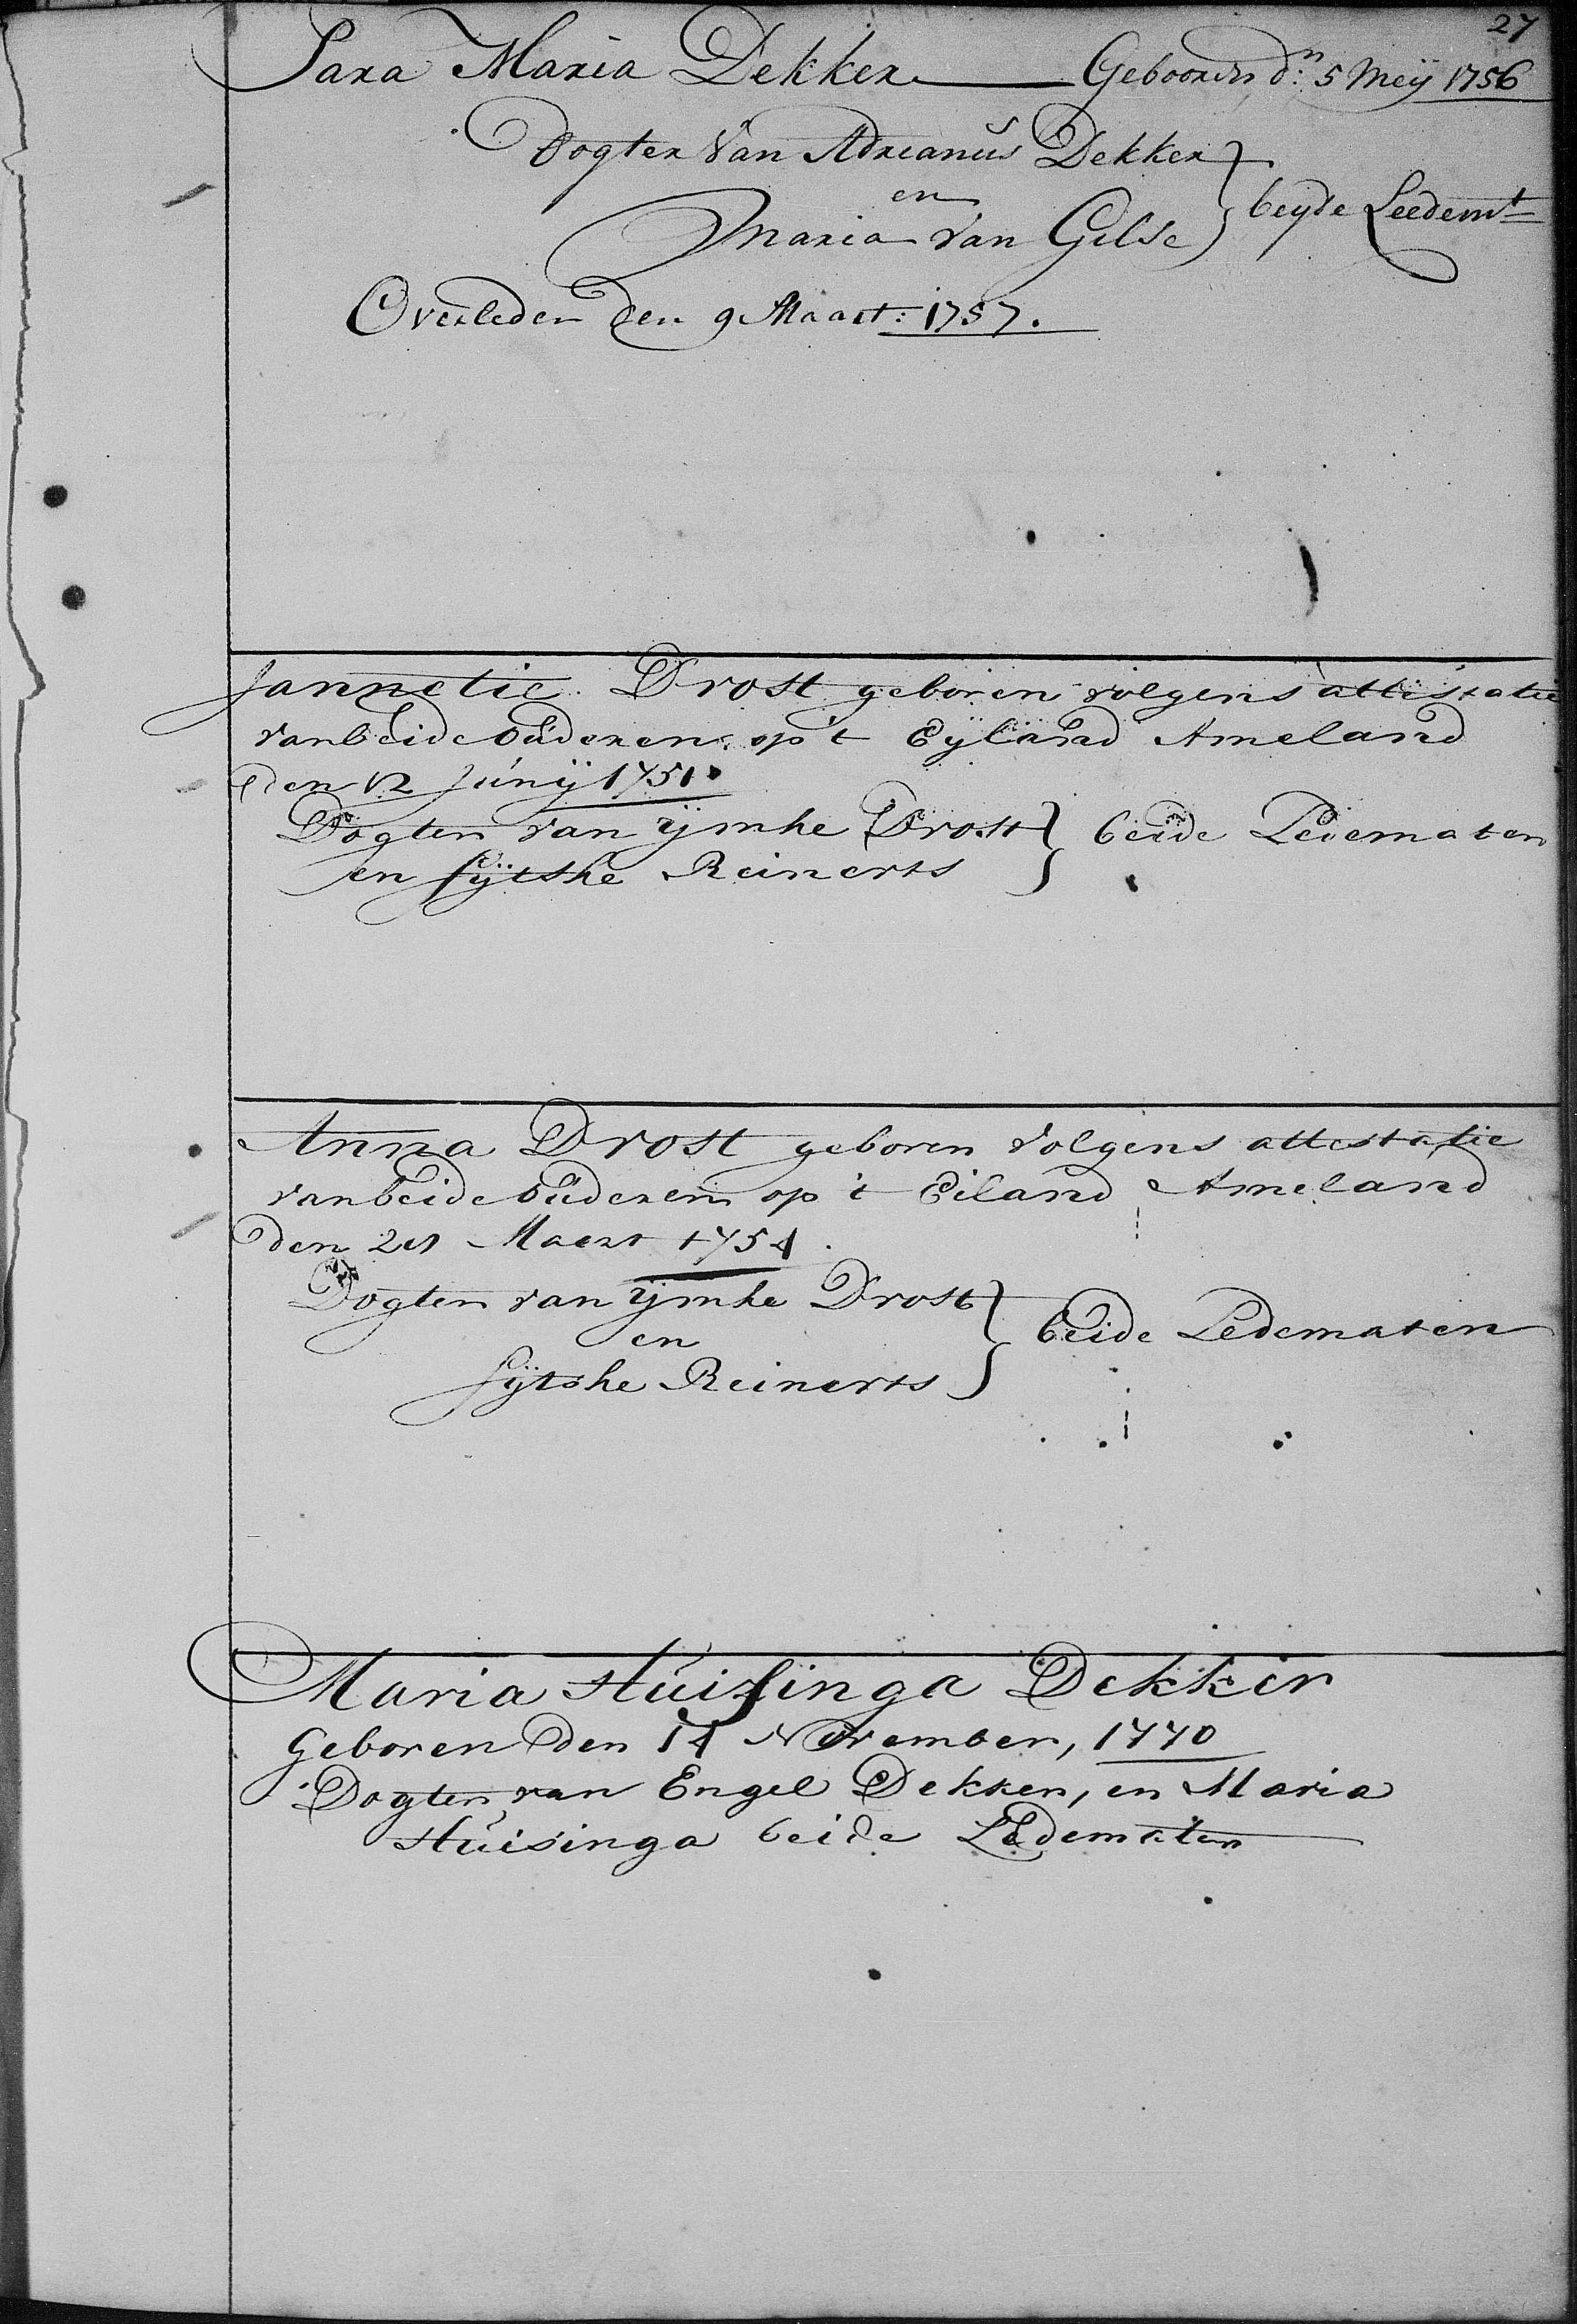 27
Sara Maria Dekker Gebooren d:n 5 Meÿ 1756
Dogter Van Adrianus Dekker
en
beyde Leedemt
Maria Van Gilse
Overleden den 9 Maart: 1757.
Jannetie Drost geboren volgens attestatie
van beide ouderen op 't Eÿland Ameland
den 12 Junÿ 1751
Dogter van ÿmke Drost } beide Ledematen
en sÿtske Reinerts
Anna Drost geboren volgens attestatie
van beide ouderen op 't Eiland Ameland
den Maert 1754.
Dogter van ÿmke Drost
en } beide Ledematen
sÿtske Reinerts
Maria Huisinga Dekker
Geboren den 14 November, 1770
Dogter van Engel Dekker, en Maria
Huisinga beide Ledematen